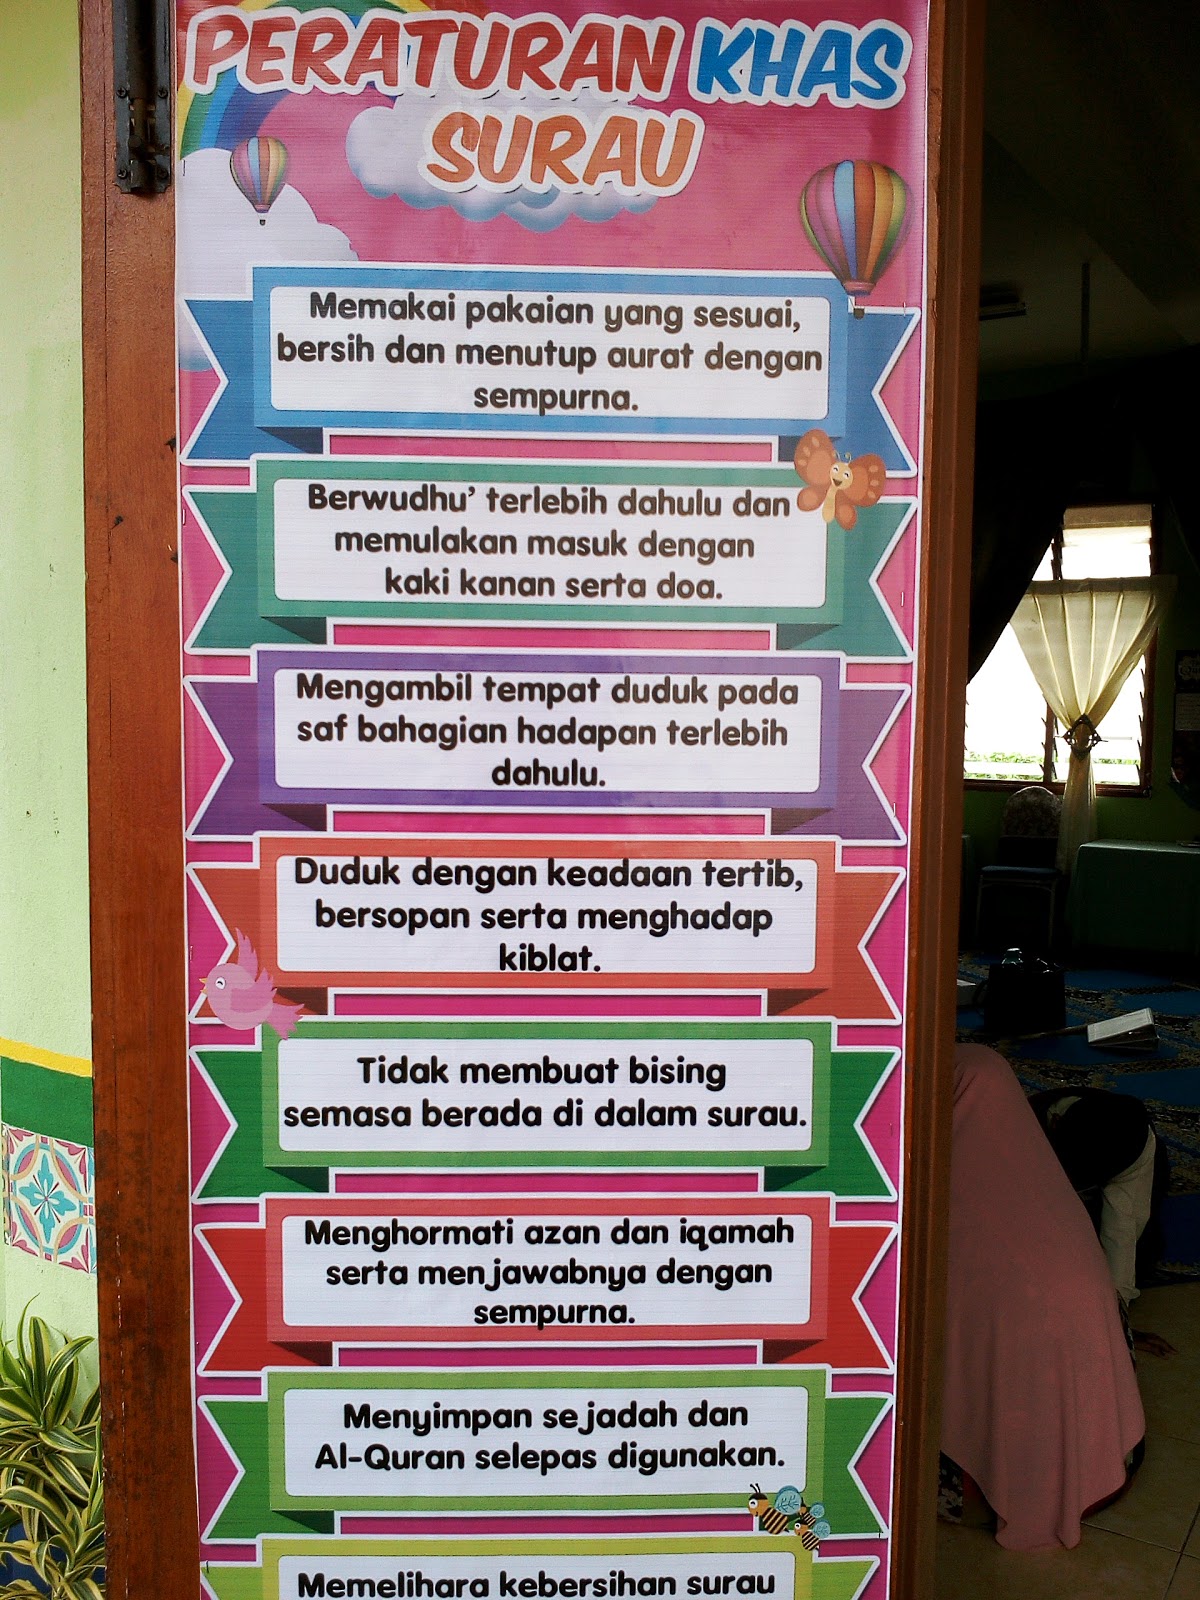 PERATURAN KHAS
SURAU
Memakai pakaian yang sesuai,
bersih dan menutup aurat dengan
sempurna.
Berwudhu' terlebih dahulu dan
memulakan masuk dengan
kaki kanan serta doa.
Mengambil tempat duduk pada
saf bahagian hadapan terlebih
dahulu.
Duduk dengan keadaan tertib,
bersopan serta menghadap
kiblat.
Tidak membuat bising
semasa berada di dalam surau.
Menghormati azan dan iqamah
serta menjawabnya dengan
sempurna.
Menyimpan sejadah dan
Al-Quran selepas digunakan.
Memelihara kebersihan surau